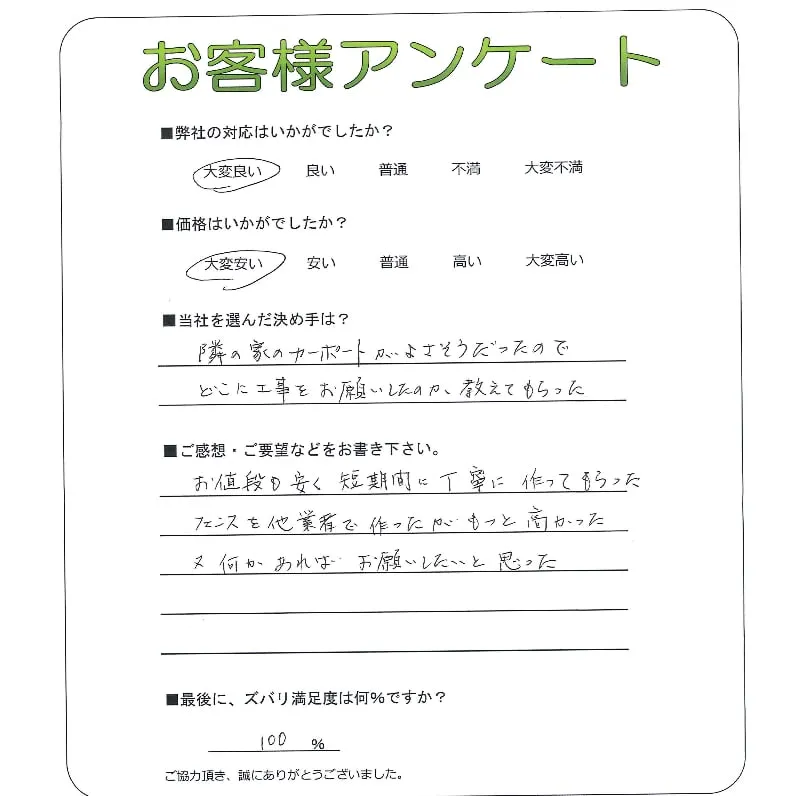 お客様アンケート
■弊社の対応はいかがでしたか？
大変良い 良い 普通 不満 大変不満
■価格はいかがでしたか？
大変安い 安い 普通 高い 大変高い
■当社を選んだ決め手は？
隣の家のカーポートがよさそうだったので
どこに工事をお願いしたのか、教えてもらった
■ご感想・ご要望などをお書き下さい。
お値段も安く短期間に丁寧に作ってもらった
フェンスを他業者で作ったがもっと高かった
又何かあればお願いしたいと思った
■最後に、ズバリ満足度は何％ですか？
100 %
ご協力頂き、誠にありがとうございました。